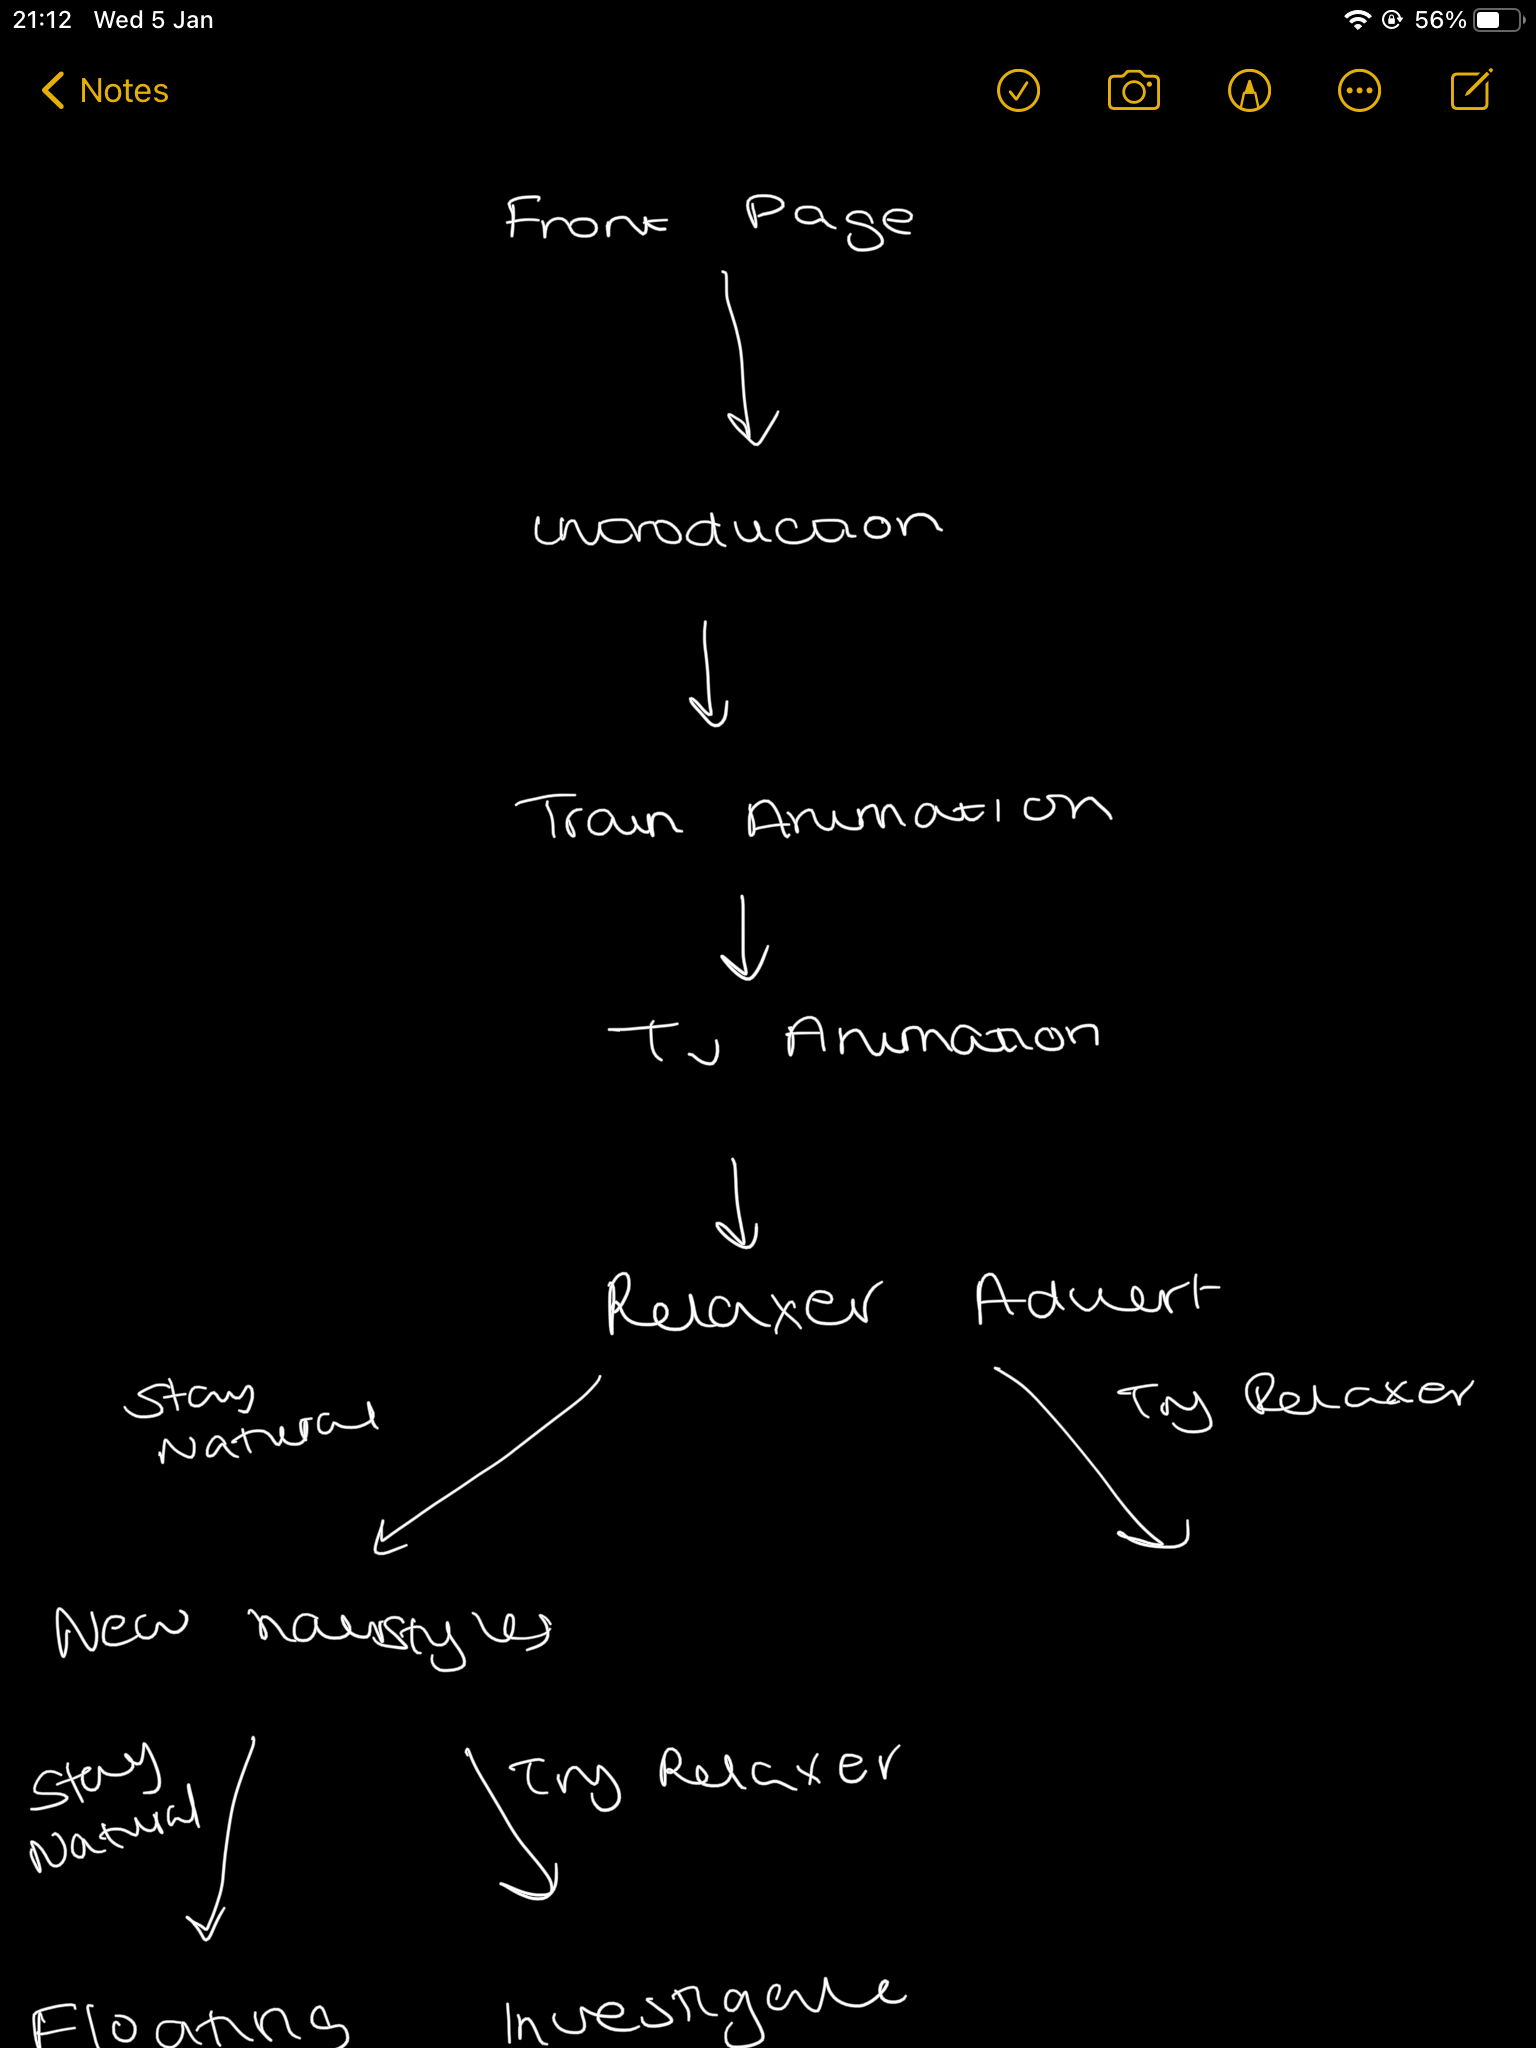 21:12 Wed 5 Jan 56%
Notes
Front Page
introduction
Train Animation
Tv Animation
Relaxer Advert
Stay
Natural
Try Relaxer
New hairstyles
Stay
Natural
Try Relaxer
Floating
Investigate